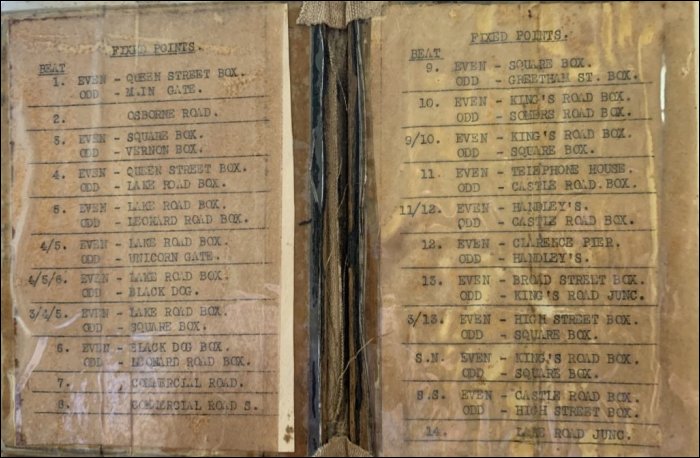 FIXED POINTS.
BEAT
1. EVEN - QUEEN STREET BOX.
ODD - MAIN GATE.
2. OSBORNE ROAD.
3. EVEN - SQUARE BOX.
ODD - VERNON BOX.
4. EVEN - QUEEN STREET BOX.
ODD - LAKE ROAD BOX.
5. EVEN - LAKE ROAD BOX.
ODD - LEONARD ROAD BOX.
4/5. EVEN - LAKE ROAD BOX.
ODD - UNICORN GATE.
4/5/6. EVEN - LAKE ROAD BOX.
ODD - BLACK DOG.
3/4/5. EVEN - LAKE ROAD BOX.
ODD - SQUARE BOX.
6. EVEN - BLACK DOG BOX.
ODD - LEONARD ROAD BOX.
7. - COMMERCIAL ROAD.
8. - COMMERCIAL ROAD S.
FIXED POINTS.
BEAT
9. EVEN - SQUARE BOX.
ODD - GREETHAM ST. BOX.
10. EVEN - KING'S ROAD BOX.
ODD - SOMERS ROAD BOX.
9/10. EVEN - KING'S ROAD BOX.
ODD - SQUARE BOX.
11 EVEN - TELEPHONE HOUSE.
ODD - CASTLE ROAD.BOX.
11/12. EVEN - HANDLEY'S.
ODD - CASTLE ROAD BOX.
12. EVEN - CLARENCE PIER.
ODD - HANDLEY'S.
13. EVEN - BROAD STREET BOX.
ODD - KING'S ROAD JUNC.
3/13. EVEN - HIGH STREET BOX.
ODD - SQUARE BOX.
S.N. EVEN - KING'S ROAD BOX.
ODD - SQUARE BOX.
S.S. EVEN - CASTLE ROAD BOX.
ODD - HIGH STREET BOX.
14. LAKE ROAD JUNC.